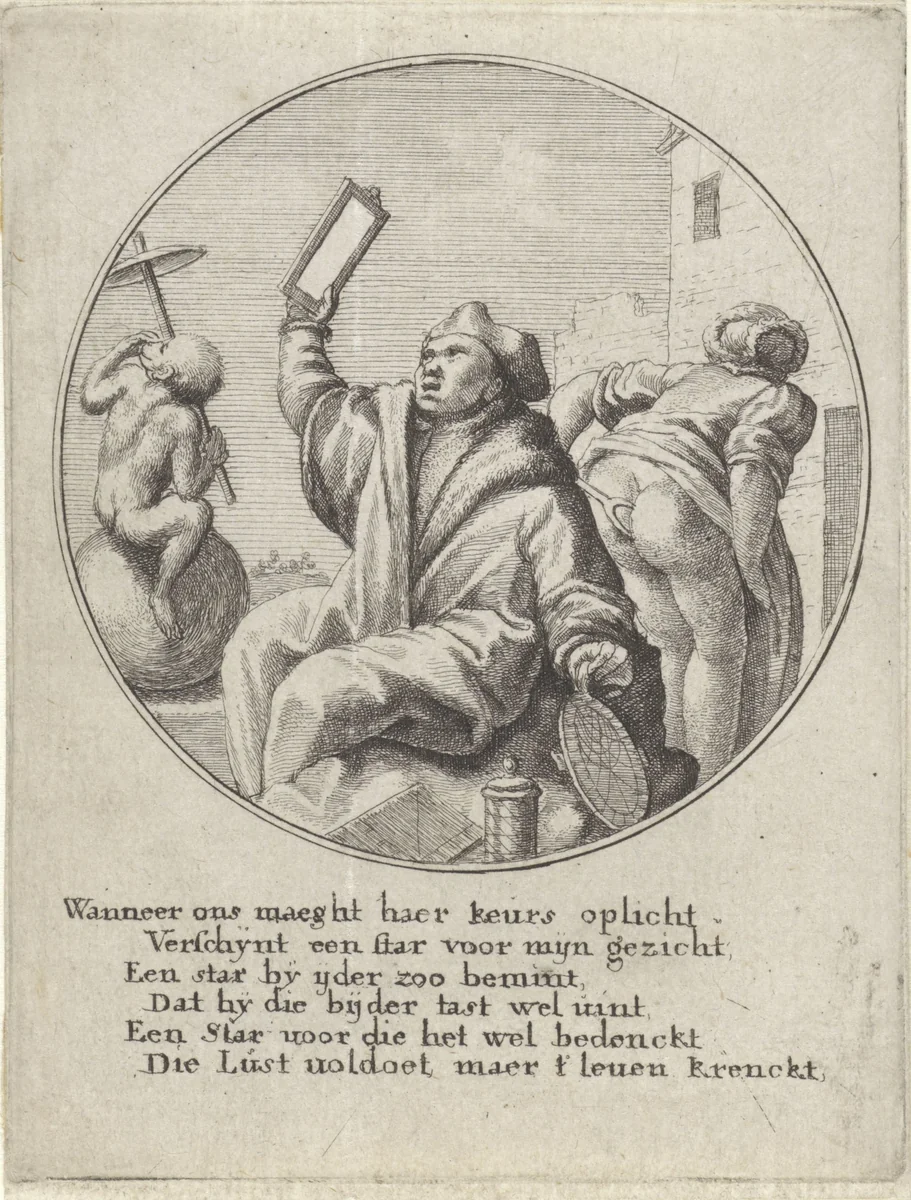 Wanneer ons maeght haer keurs oplicht
Verschÿnt een star voor mijn gezicht,
Een star bÿ ÿder zoo bemint,
Dat hÿ die bijder tast wel uint,
Een Star uoor die het wel bedenckt
Die Lúst uoldoet, maer t' leuen krenckt,